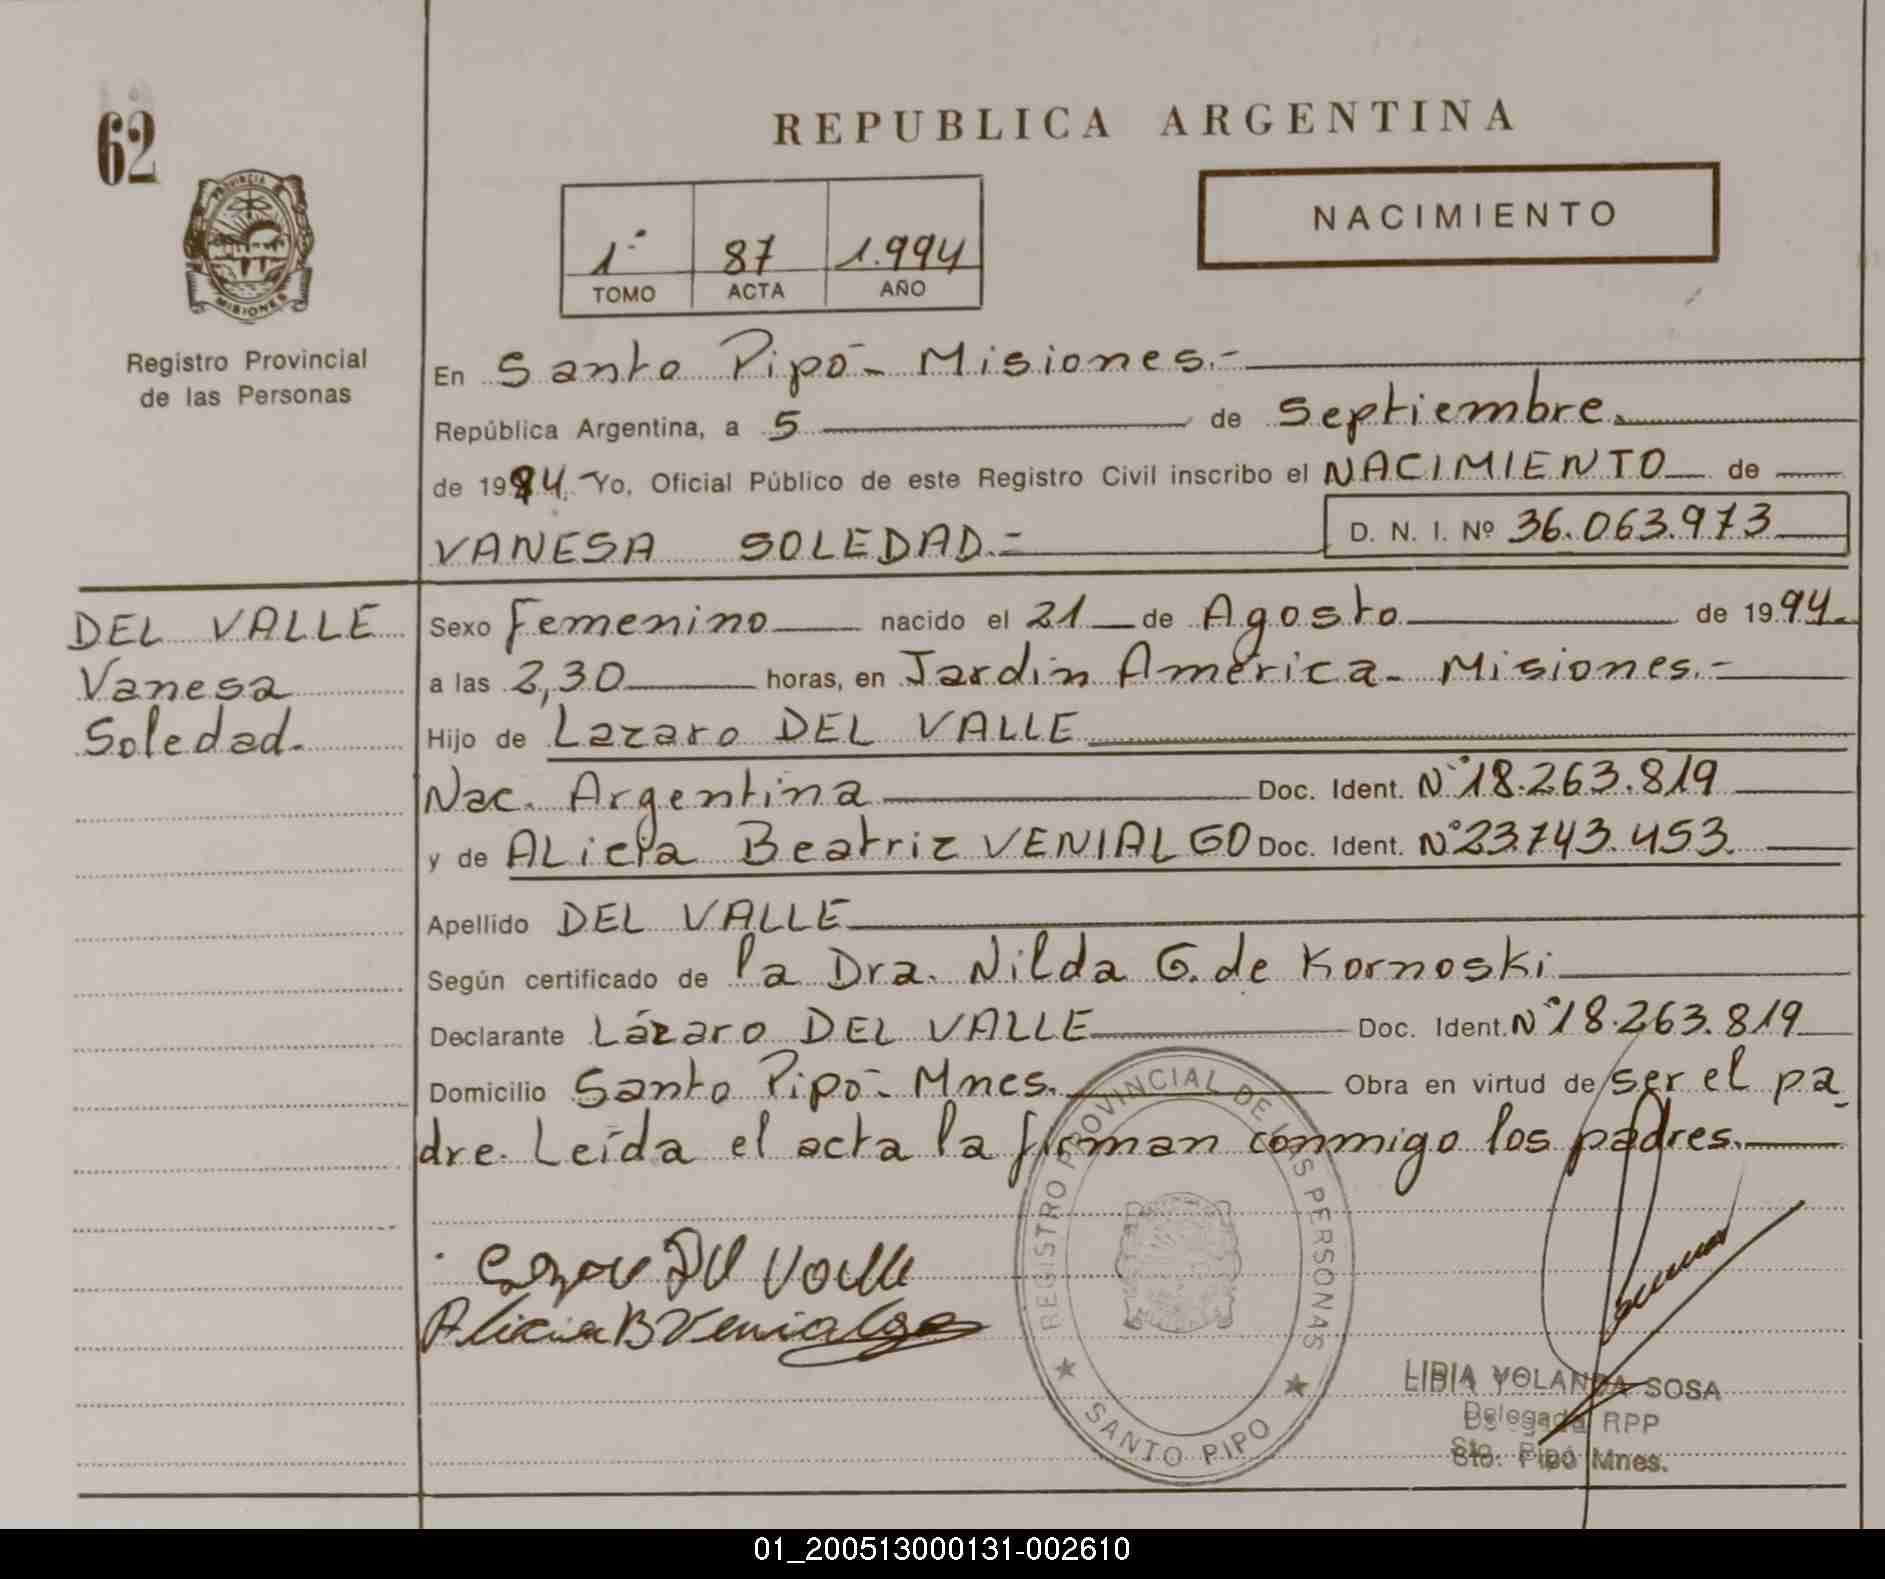 62
PROVINCIA
MISIONES
Registro Provincial
de las Personas
REPUBLICA ARGENTINA
1º 87 1.994
TOMO ACTA AÑO
NACIMIENTO
En Santo Pipó - Misiones.-
República Argentina, a 5 de Septiembre.
de 1994. Yo, Oficial Público de este Registro Civil inscribo el NACIMIENTO de
VANESA SOLEDAD.=
D. N. I. Nº 36.063.973
DEL VALLE
Vanesa
Soledad.
Sexo Femenino nacido el 21 de Agosto de 1994.
a las 2,30 horas, en Jardín América - Misiones.-
Hijo de Lazaro DEL VALLE
Nac. Argentina Doc. Ident. Nº 18.263.819
y de ALicia Beatriz VENIALGO Doc. Ident. Nº 23.743.453.
Apellido DEL VALLE
Según certificado de la Dra. Nilda G. de Kornoski
Declarante Lázaro DEL VALLE Doc. Ident. Nº 18.263.819
Domicilio Santo Pipó - Mnes. Obra en virtud de ser el pa
dre. Leída el acta la firman conmigo los padres.
Del Valle
Alicia B Venialgo
REGISTRO PROVINCIAL DE LAS PERSONAS
SANTO PIPO
LIDIA YOLANDA SOSA
Delegada RPP
Sto. Pipó Mnes.
01_200513000131-002610